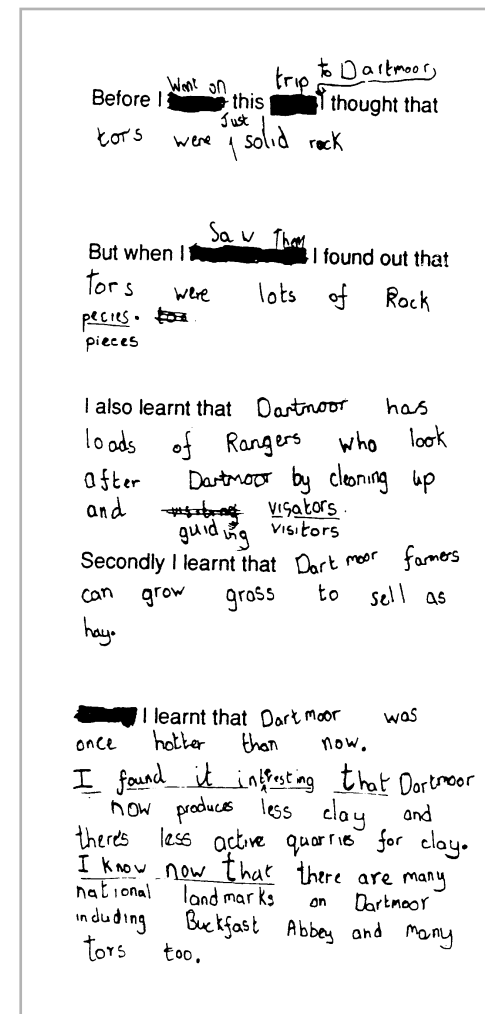 Before I went on this trip to Dartmoor I thought that
tors were just solid rock
But when I Saw Them I found out that
Tors were lots of Rock
pecies.
pieces
I also learnt that Dartmoor has
loads of Rangers who look
after Dartmoor by cleaning up
and visiting visators.
guiding visitors
Secondly I learnt that Dartmoor famers
can grow grass to sell as
hay.
I learnt that Dartmoor was
once hotter than now.
I found it intresting that Dartmoor
now produces less clay and
there's less active quarries for clay.
I know now that there are many
national landmarks on Dartmoor
including Buckfast Abbey and many
tors too.